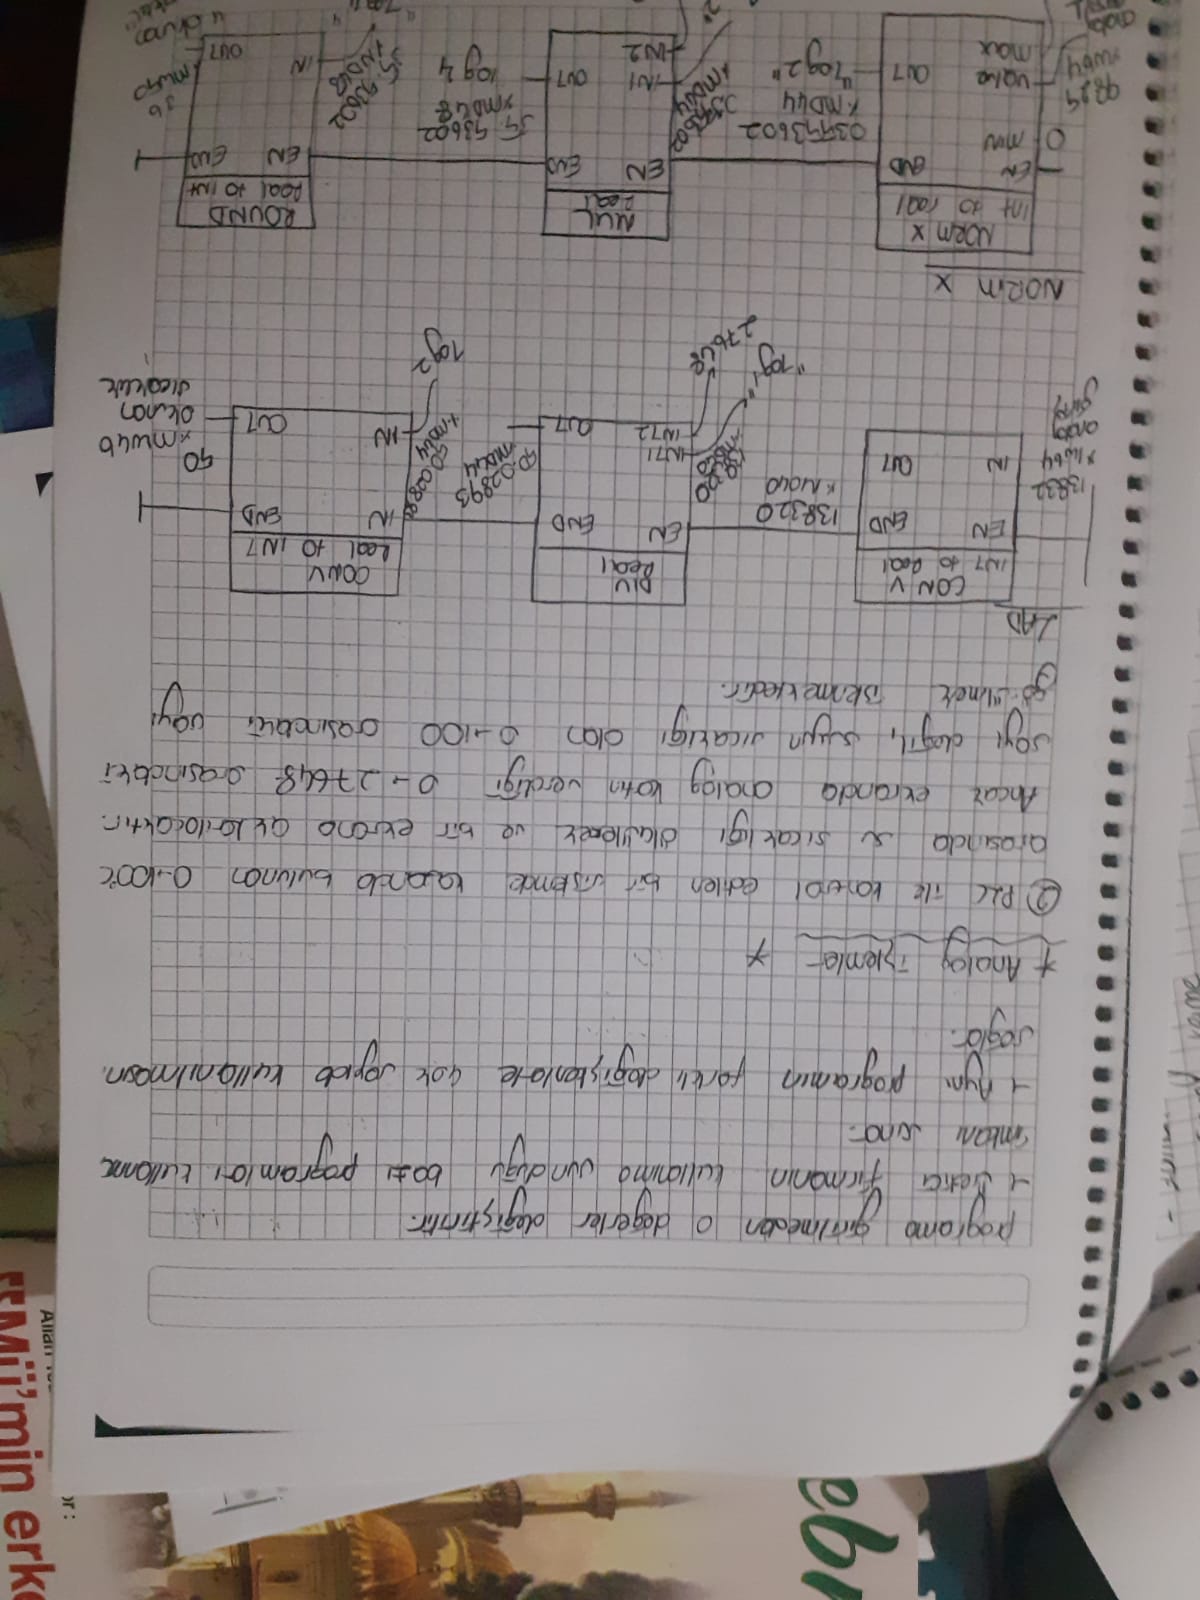 ebr
"Mü'min erke
or:
programa girilmeden o değerler değiştirilir.
→ Üretici firmanın kullanıma sunduğu bazı programları kullanma
imkanı sunar.
→ Aynı programın farklı değişkenlerle çok sayıda kullanılmasın
sağlar.
* Analog işlemler *
② PLC ile kontrol edilen bir sistemde kazanda bulunan 0→100°C
arasında su sıcaklığı ölçülecek ve bir ekrana aktarılacaktır.
Ancak ekranda analog kartın verdiği 0→27648 arasındaki
sayı değil, suyun sıcaklığı olan 0→100 arasındaki sayı
görülmek istenmektedir.
LAD
CONV
INT to Real
EN END
IN OUT
13832
*IW64
analog
giriş
138320
*MD40
DIV
Real
EN END
INT1
INT2 OUT
138320
"Tag1"
27648
50.02893
MD44
CONV
Real to INT
IN END
IN OUT
*MD44
Tag2
50
*MW46
okunan
sıcaklık
NORM X
NORM X
int to real
EN END
0 MIN
value OUT
max
9829
*IW64
03593602
*MD44
"Tag2"
MUL
Real
EN END
IN1 OUT
IN2
*MD44
35.93602
*MD48
Tag4
ROUND
Real to Int
EN END
IN
OUT
35.93602
*MD48
36
MW50